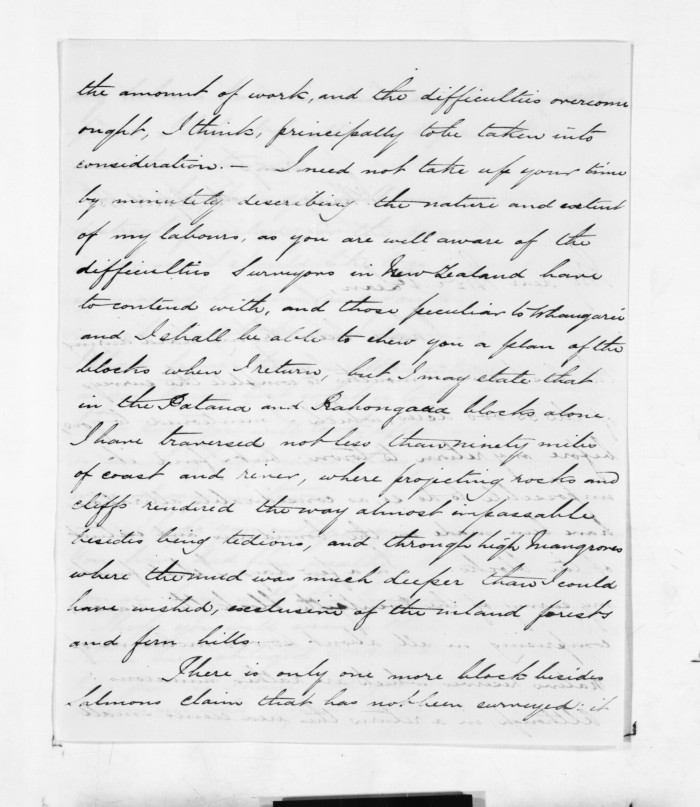 the amount of work, and the difficulties overcome
ought, I think, principally to be taken into
consideration. — I need not take up your time
by minutely describing the nature and extent
of my labours, as you are well aware of the
difficulties Surveyors in New Zealand have
to contend with, and those peculiar to Whangarei
and I shall be able to shew you a plan of the
blocks when I return, but I may state that
in the Pataua and blocks alone
I have traversed not less than ninety miles
of coast and river, where projecting rocks and
cliffs rendered the way almost impassable
besides being tedious, and through high Mangroves
where the mud was much deeper than I could
have wished, exclusive of the inland forests
and fern hills.
There is only one more block besides
Salmons claim that has not been surveyed: it